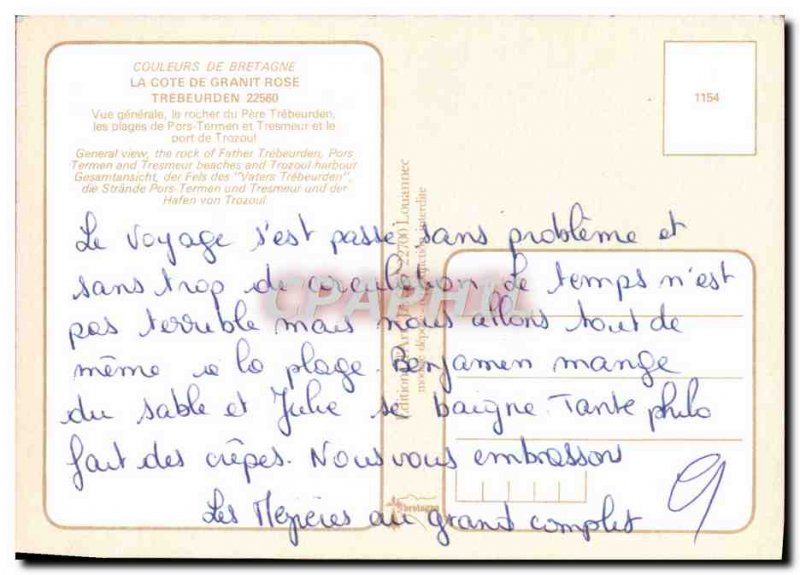 COULEURS DE BRETAGNE
LA COTE DE GRANIT ROSE
TRÉBEURDEN 22560
Vue générale, le rocher du Père Trébeurden,
les plages de Pors-Termen et Tresmeur et le
port de Trozoul
General view, the rock of Father Trébeurden, Pors
Termen and Tresmeur beaches and Trozoul harbour
Gesamtansicht, der Fels des "Vaters Trébeurden",
die Strände Pors-Termen und Tresmeur und der
Hafen von Trozoul.
1154
Le voyage s'est passé sans problème et
sans trop de circulation. Le temps n'est
pas terrible mais nous allons tout de
même à la plage. Benjamen mange
du sable et Julie se baigne. Tante philo
fait des crêpes. Nous vous embrassons
Les Mézières au grand complet
Editions d'Art 22700 Louannec
interdite
bretagne
CPAPHIL